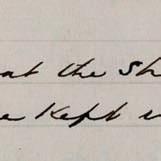 at the Sh
e Kept